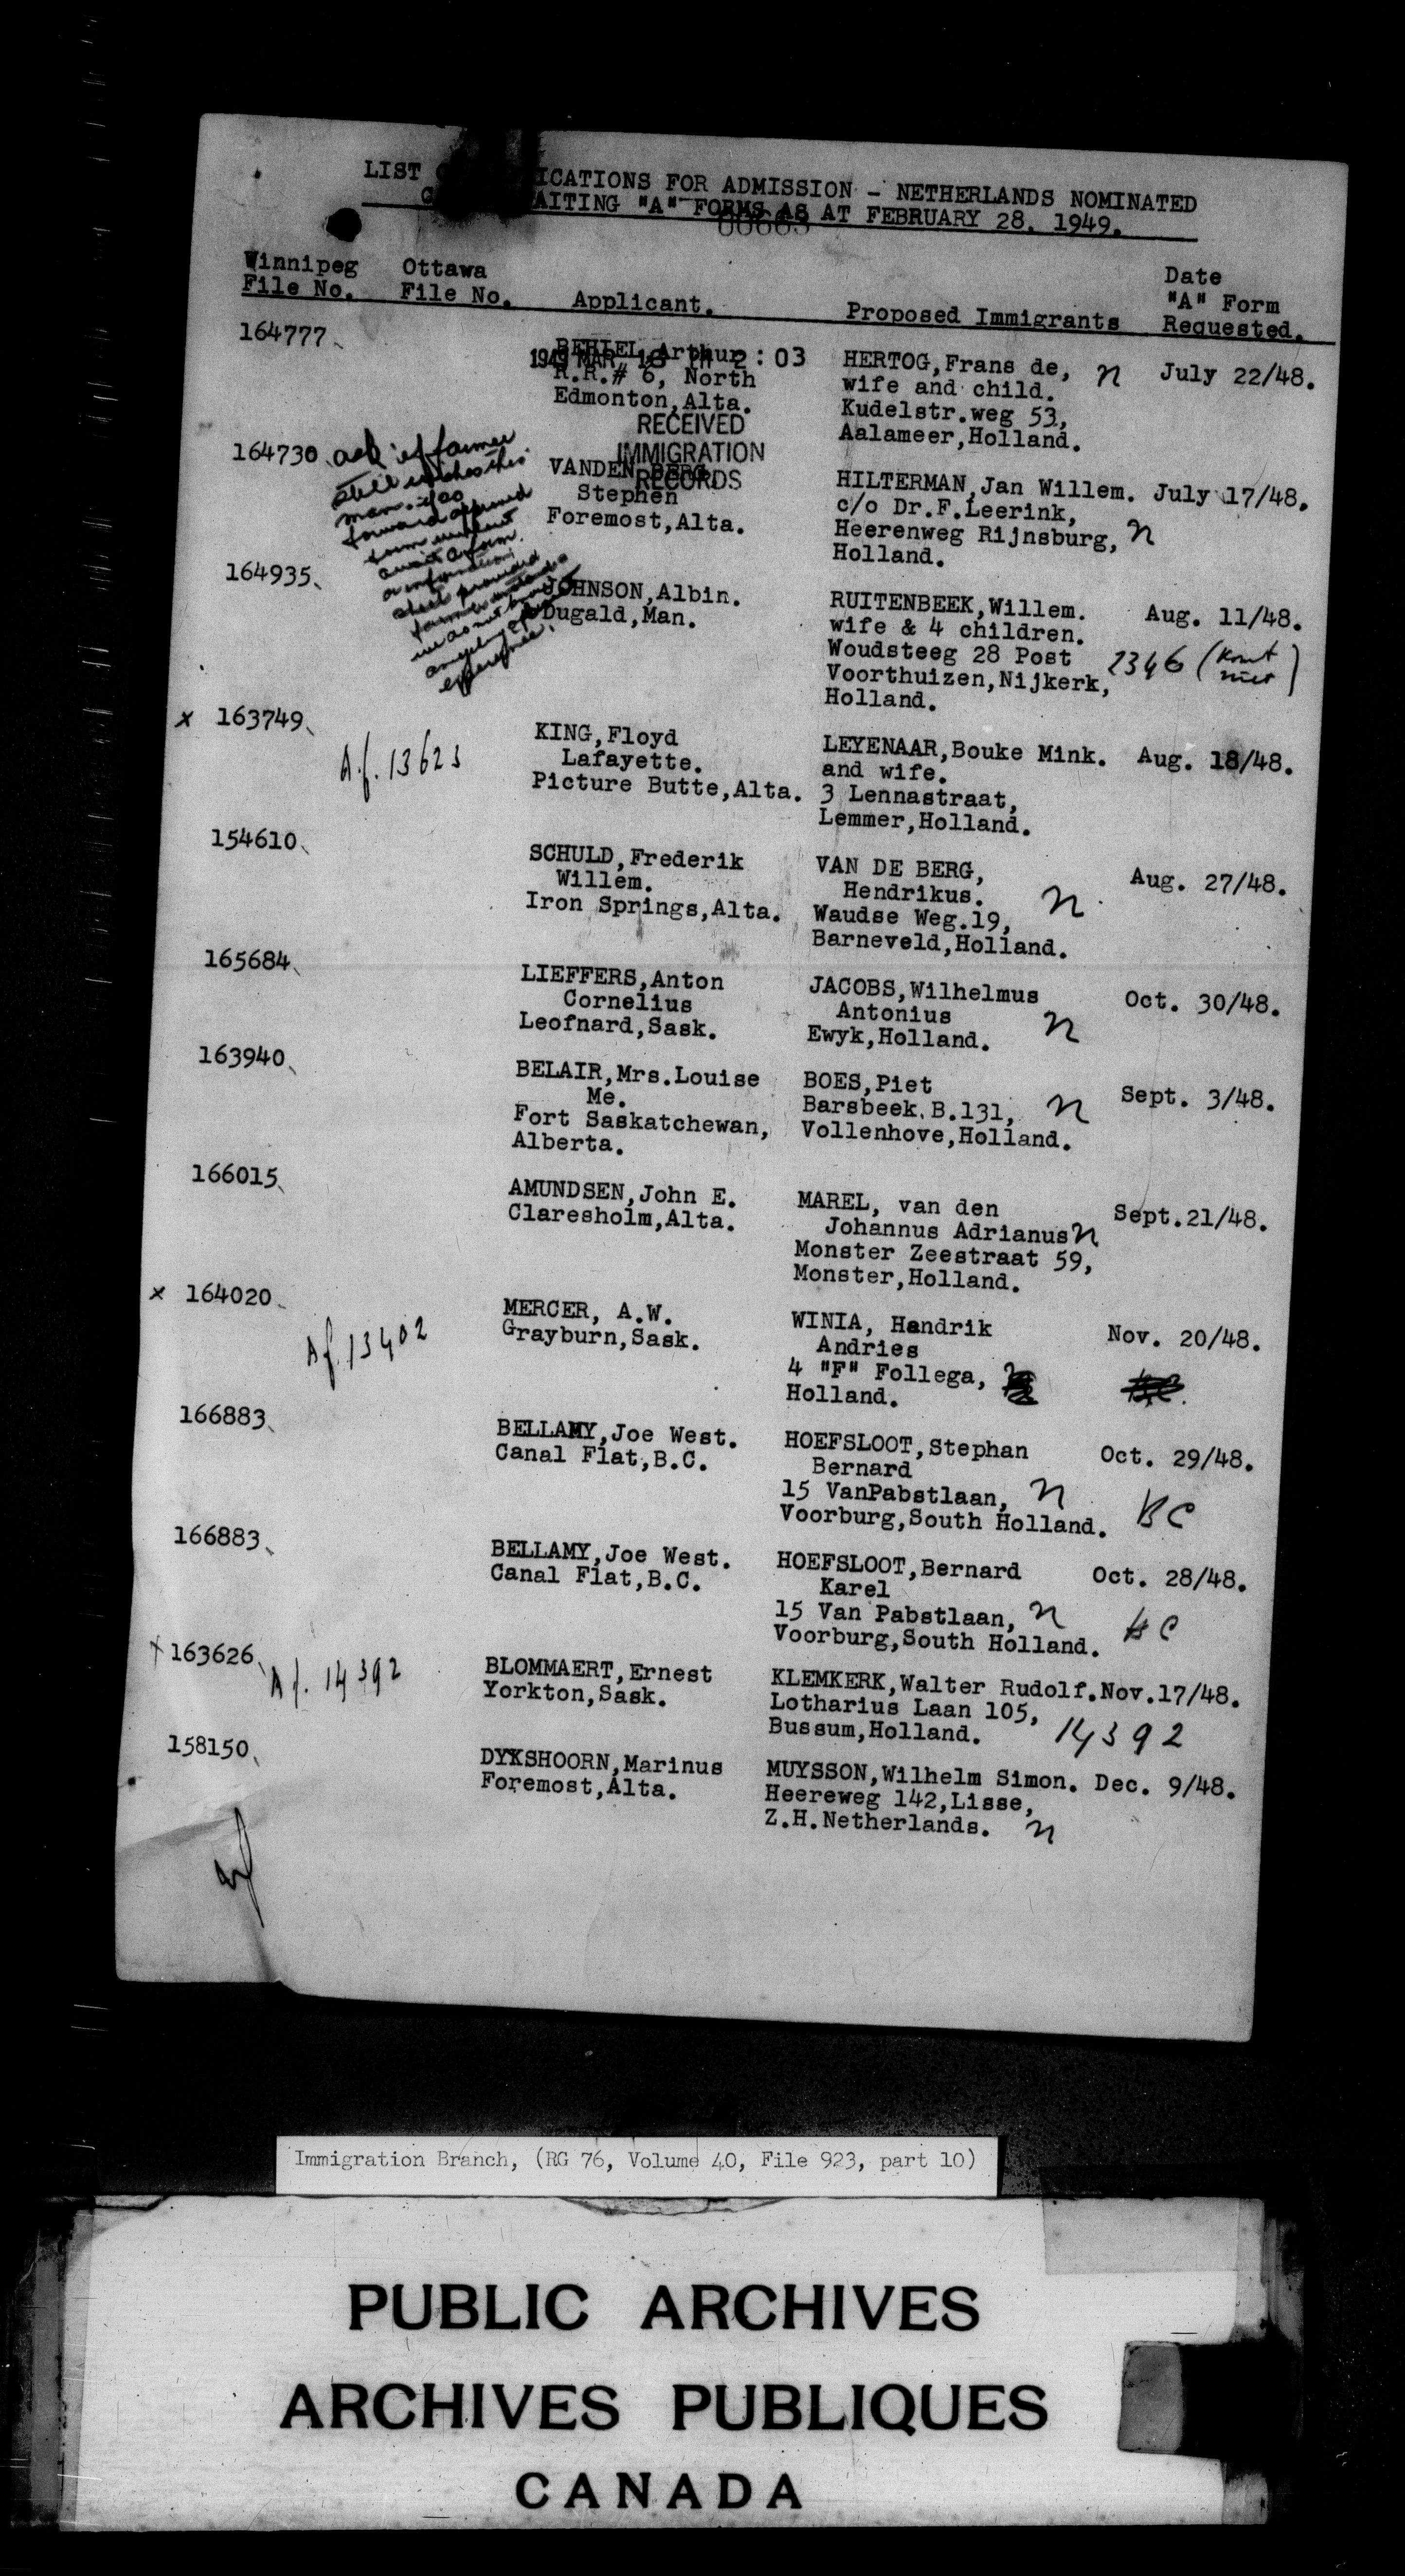 LIST ICATIONS FOR ADMISSION - NETHERLANDS NOMINATED
AITING "A" FORMS AS AT FEBRUARY 28, 1949.
Winnipeg File No. Ottawa File No. Applicant. Proposed Immigrants Date "A" Form Requested.
1949 MAR 2:03
RECEIVED
IMMIGRATION
RECORDS
164777 Arthur HERTOG, Frans de, n July 22/48.
R.R.# 6, North wife and child.
Edmonton, Alta. Kudelstr.weg 53,
Aalameer, Holland.
164730 VANDEN BERG, HILTERMAN, Jan Willem. July 17/48.
Stephen c/o Dr.F.Leerink,
Foremost, Alta. Heerenweg Rijnsburg, n
Holland.
ask if farmer
still wishes this
man. if so
forward
164935 JOHNSON, Albin. RUITENBEEK, Willem. Aug. 11/48.
Dugald, Man. wife & 4 children.
Woudsteeg 28 Post 2346
Voorthuizen, Nijkerk,
Holland.
x 163749 KING, Floyd LEYENAAR, Bouke Mink. Aug. 18/48.
A.f. 13623 Lafayette. and wife.
Picture Butte, Alta. 3 Lennastraat,
Lemmer, Holland.
154610 SCHULD, Frederik VAN DE BERG, Aug. 27/48.
Willem. Hendrikus. n
Iron Springs, Alta. Waudse Weg.19,
Barneveld, Holland.
165684 LIEFFERS, Anton JACOBS, Wilhelmus Oct. 30/48.
Cornelius Antonius n
Leofnard, Sask. Ewyk, Holland.
163940 BELAIR, Mrs. Louise BOES, Piet Sept. 3/48.
Me. Barsbeek.B.131, n
Fort Saskatchewan, Vollenhove, Holland.
Alberta.
166015 AMUNDSEN, John E. MAREL, van den Sept.21/48.
Claresholm, Alta. Johannus Adrianus n
Monster Zeestraat 59,
Monster, Holland.
x 164020 MERCER, A.W. WINIA, Handrik Nov. 20/48.
Af. 13402 Grayburn, Sask. Andries
4 "F" Follega,
Holland.
166883 BELLAMY, Joe West. HOEFSLOOT, Stephan Oct. 29/48.
Canal Flat, B.C. Bernard
15 VanPabstlaan, n BC
Voorburg, South Holland.
166883 BELLAMY, Joe West. HOEFSLOOT, Bernard Oct. 28/48.
Canal Flat, B.C. Karel
15 Van Pabstlaan, n BC
Voorburg, South Holland.
x 163626 BLOMMAERT, Ernest KLEMKERK, Walter Rudolf. Nov.17/48.
Af. 14392 Yorkton, Sask. Lotharius Laan 105,
Bussum, Holland. 14392
158150 DYKSHOORN, Marinus MUYSSON, Wilhelm Simon. Dec. 9/48.
Foremost, Alta. Heereweg 142, Lisse,
Z.H.Netherlands. n
Immigration Branch, (RG 76, Volume 40, File 923, part 10)
PUBLIC ARCHIVES
ARCHIVES PUBLIQUES
CANADA